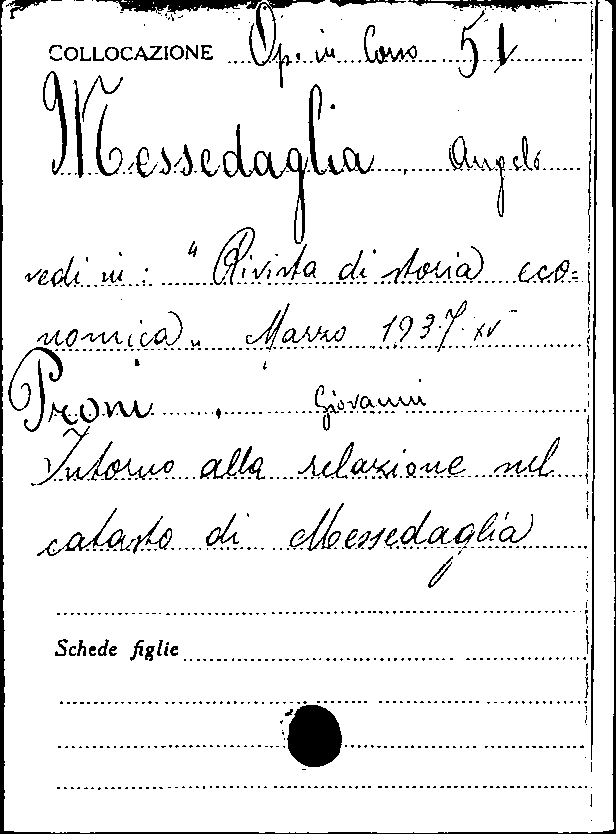 COLLOCAZIONE Op. in Corso 51
Messedaglia, Angelo
vedi in: "Rivista di storia eco=
nomica" Marzo 1937 XV
Proni, Giovanni
Intorno alla relazione nel
catasto di Messedaglia
Schede figlie